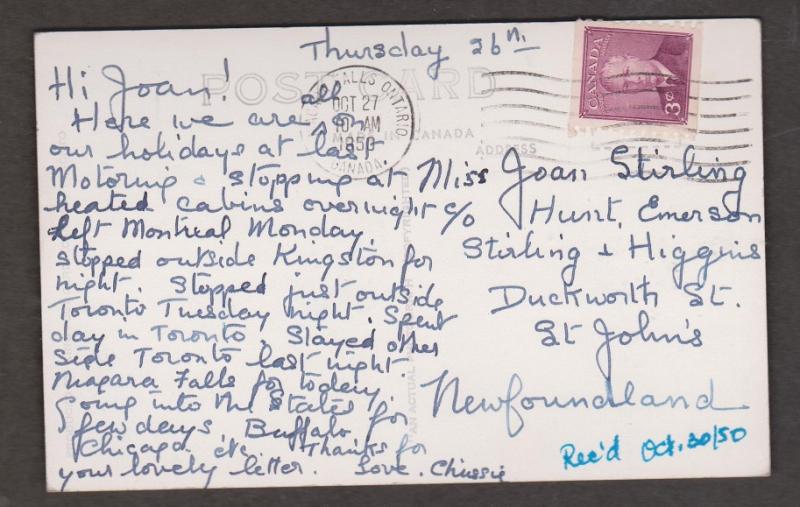 Thursday 26th
Hi Joan!
POST CARD
Here we are all on
our holidays at last
Motoring & stopping at
heated cabins overnight
left Montreal Monday,
stopped outside Kingston for
night. Stopped just outside
Toronto Tuesday night. Spent
day in Toronto. Stayed other
side Toronto last night.
Niagara Falls for today
Going into the States for
few days Buffalo
Chicago etc. Thanks for
your lovely letter. Love. Chrissie
FALLS ONTARIO
OCT 27
10 AM
1950
CANADA
MADE IN CANADA
ADDRESS
CANADA
3¢
Miss Joan Stirling
c/o Hunt, Emerson
Stirling & Higgins
Duckworth St.
St John's
Newfoundland
Rec'd Oct. 30/50
AN ACTUAL